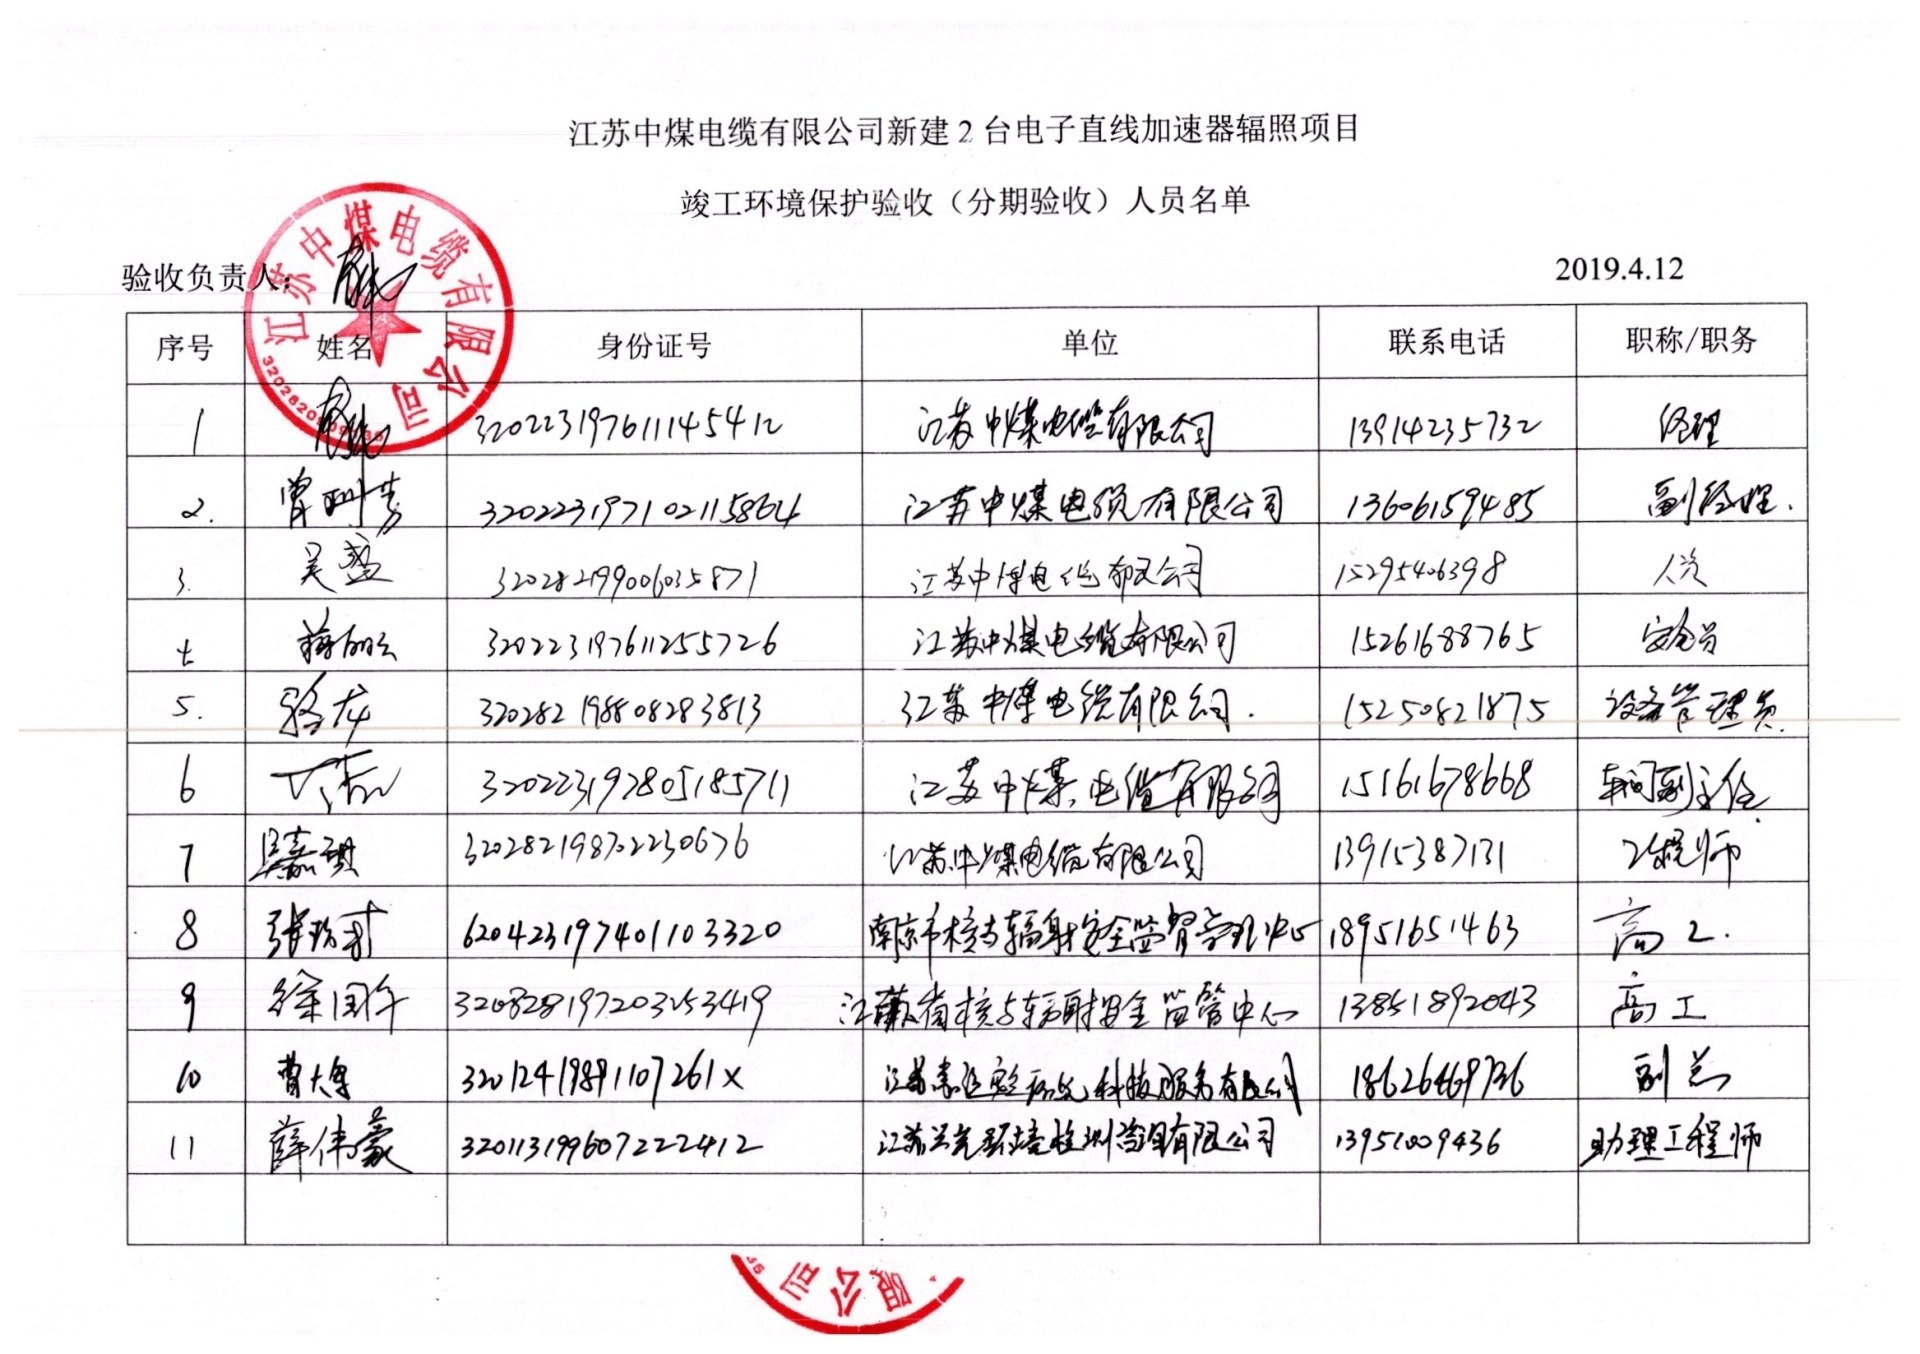 江苏中煤电缆有限公司新建2台电子直线加速器辐照项目
竣工环境保护验收（分期验收）人员名单
江苏中煤电缆有限公司
验收负责人： 2019.4.12
序号 姓名 身份证号 单位 联系电话 职称/职务
1 320223197611145412 江苏中煤电缆有限公司 13914235732 经理
2. 320223197102115864 江苏中煤电缆有限公司 13606159485 副经理.
3. 吴盛 320282199006035871 江苏中煤电缆有限公司 15295406398 人员
4 320223197611255726 江苏中煤电缆有限公司 15261688765 安全员
5. 骆龙 320282198808283813 江苏中煤电缆有限公司. 15250821875 设备管理员
6 320223197805185711 江苏中煤电缆有限公司 15161678668 车间副主任
7 吴嘉琪 320282198702230676 江苏中煤电缆有限公司 13915387131 工程师
8 620423197401103320 南京市核与辐射安全监督管理中心 18951651463 高工.
9 320828197203253419 江苏省核与辐射安全监管中心 13851892043 高工
10 32012419891107261X 科技服务有限公司 18626469736 副总
11 薛伟豪 320113199607222412 江苏 环境检测咨询有限公司 13951009436 助理工程师
限公司